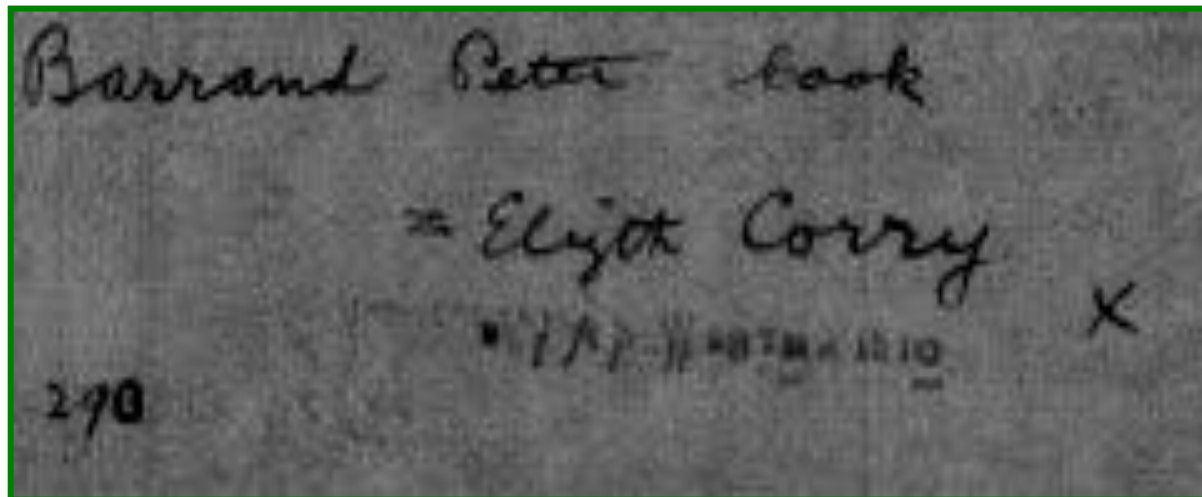 Barrand Peter Cook
= Elizth Corry
X
290